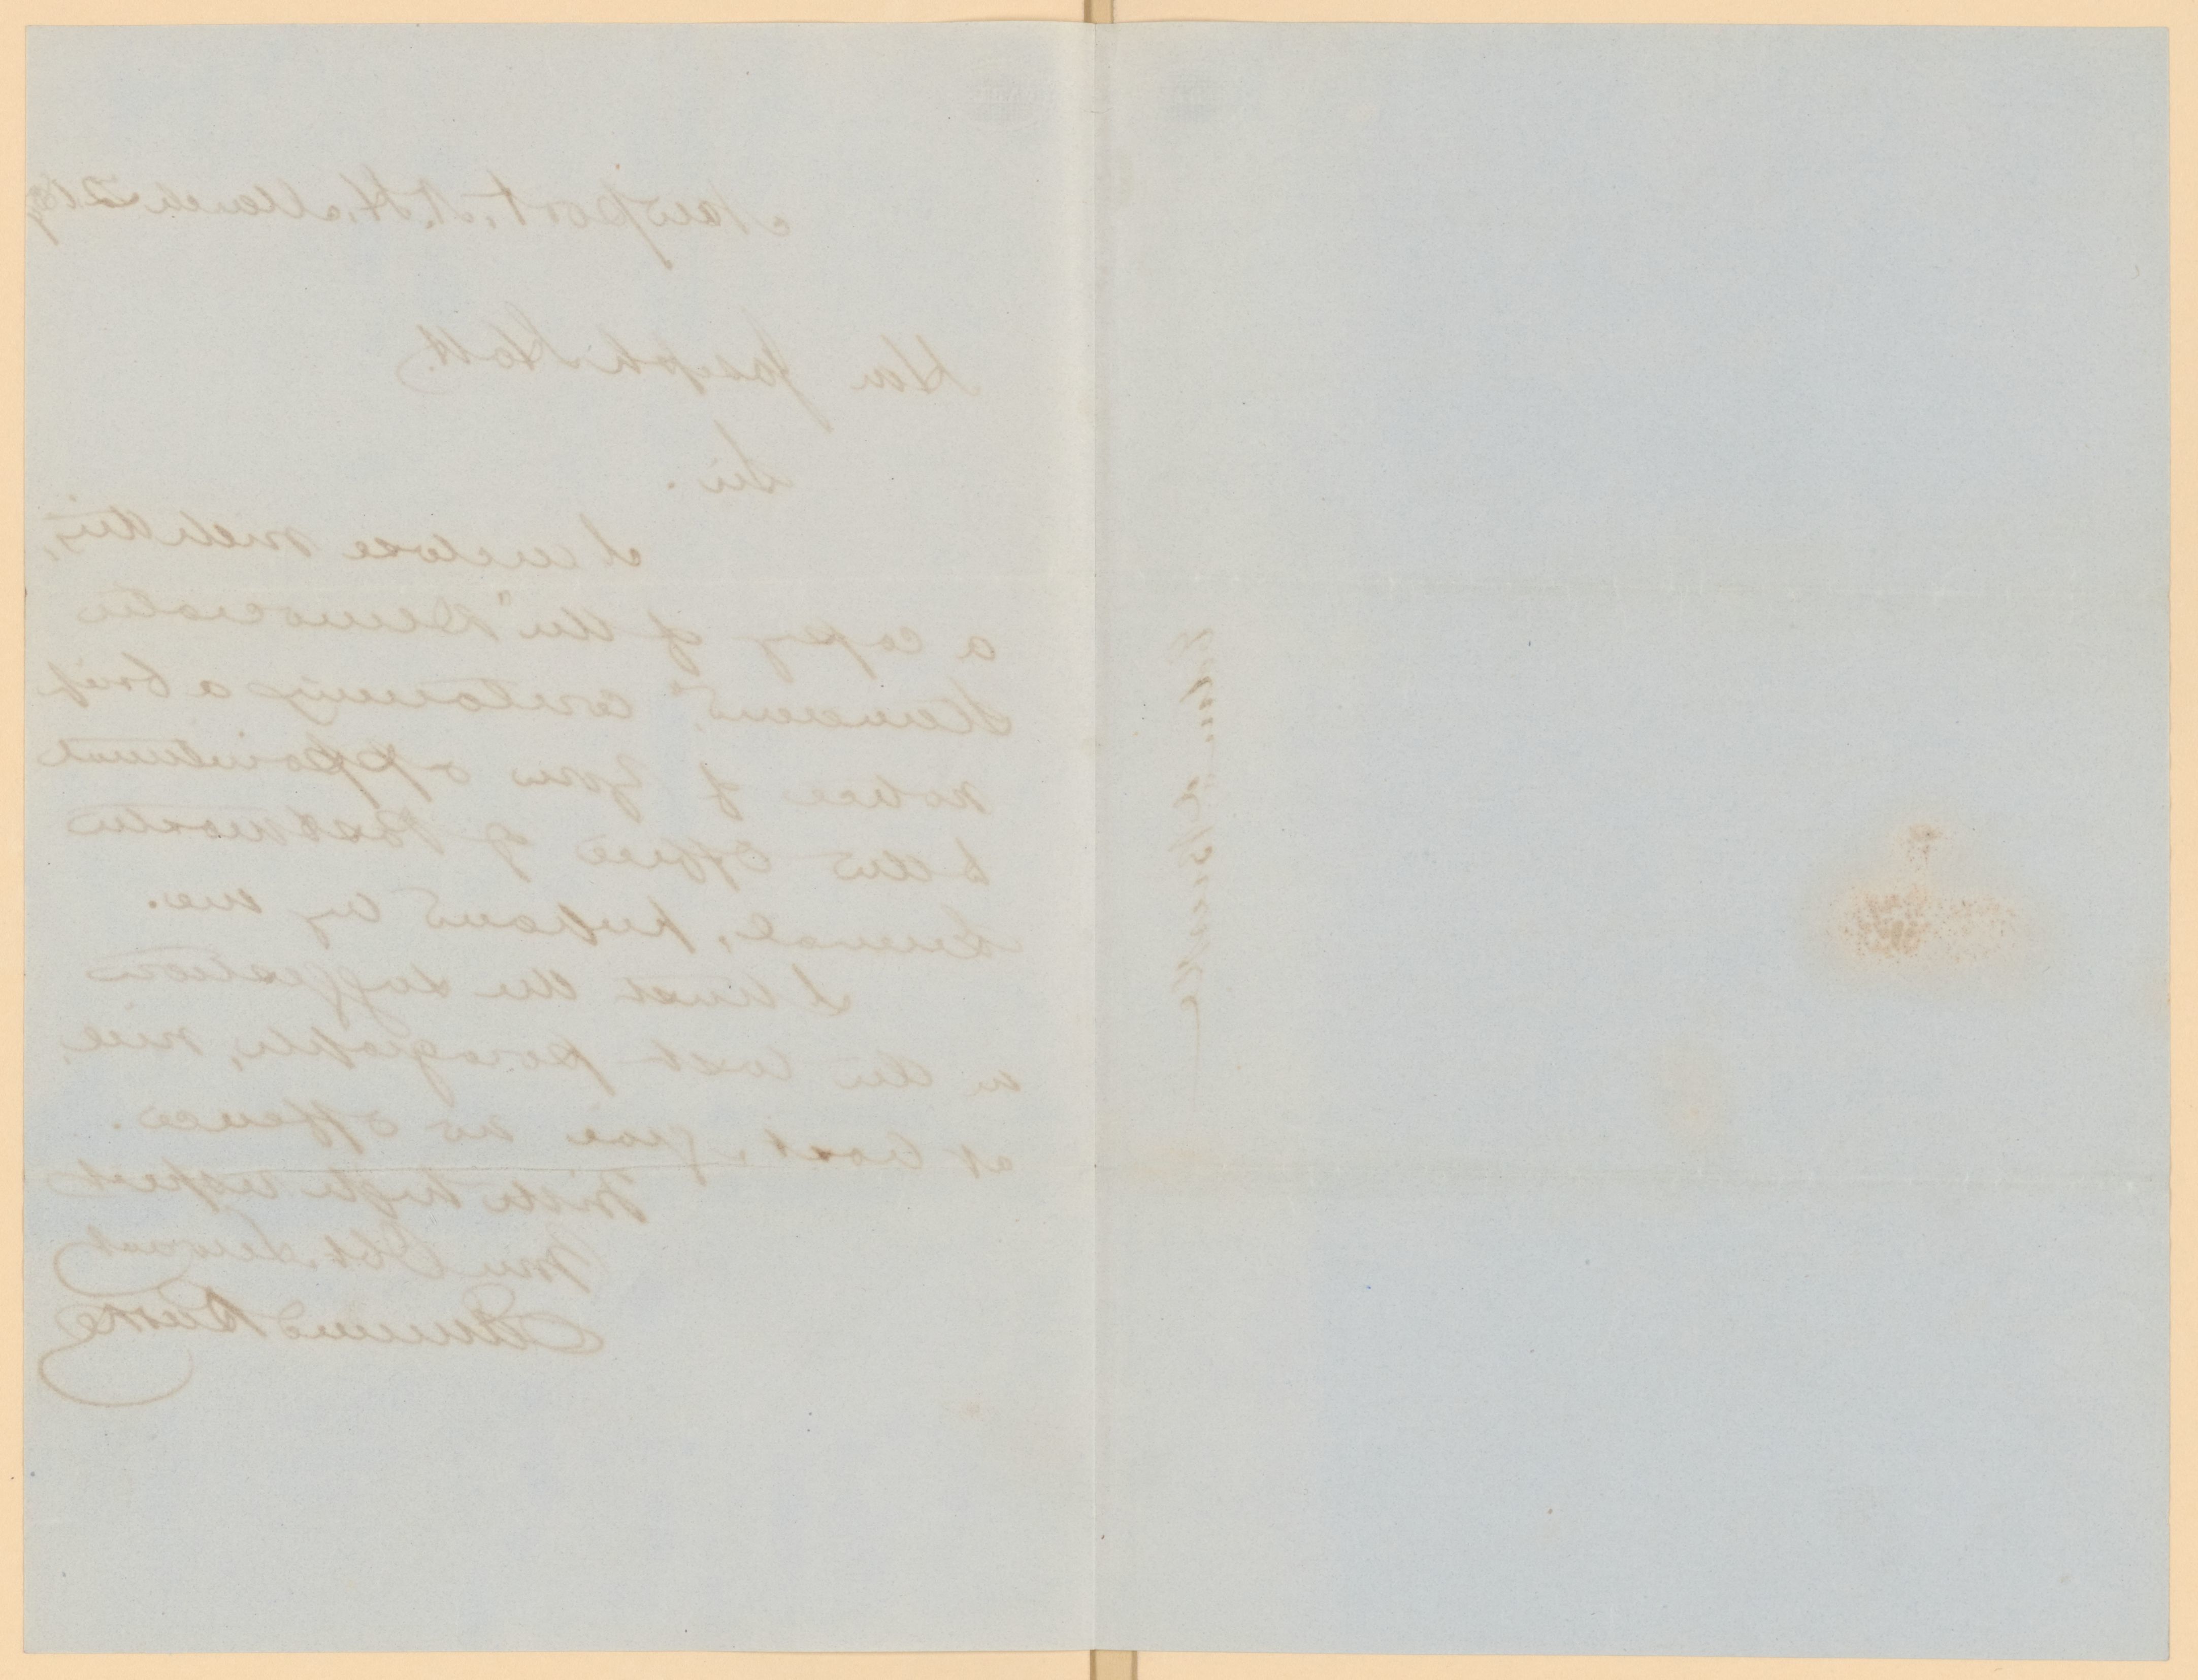 Newport, N.H. March 21
Hon Joseph Holt.
Sir.
I enclose with this,
a copy of the "Democratic
Standard," containing a brief
notice of your appointment
to the office of Postmaster
General, penned by me.
I trust the suggestions
in the last paragraph, will,
at least, give no offence.
With high respect
Your Obt. Servant
Edmund Burke